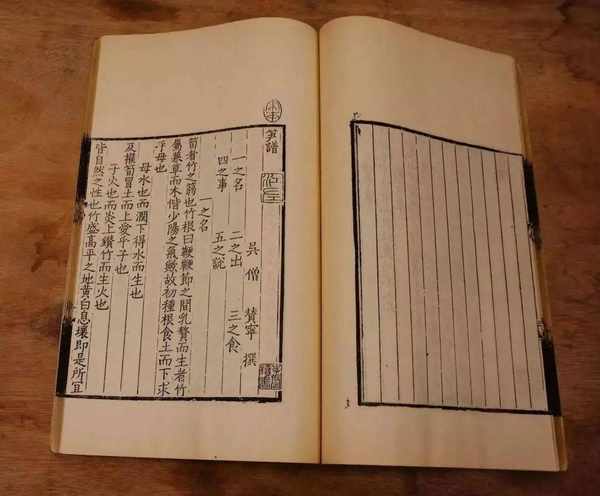 笋譜
吳僧 賛寧 撰
一之名 二之出 三之食
四之事 五之說
一之名
筍者竹之筋也竹根曰鞭鞭節之間乳贅而生者竹
屬蒹草而木偕少陽之氣皦故初種根食土而下求
乎母也
母水也而潤下得水而生也
及擢筍冒土而上愛乎子也
子火也而炎上鑚竹而生火也
皆自然之性也竹盛高平之地黄白息壤即是所宜